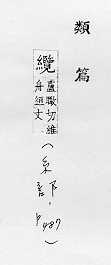 類篇
纜
盧瞰切維
舟絙丈
(糸部下, P487)